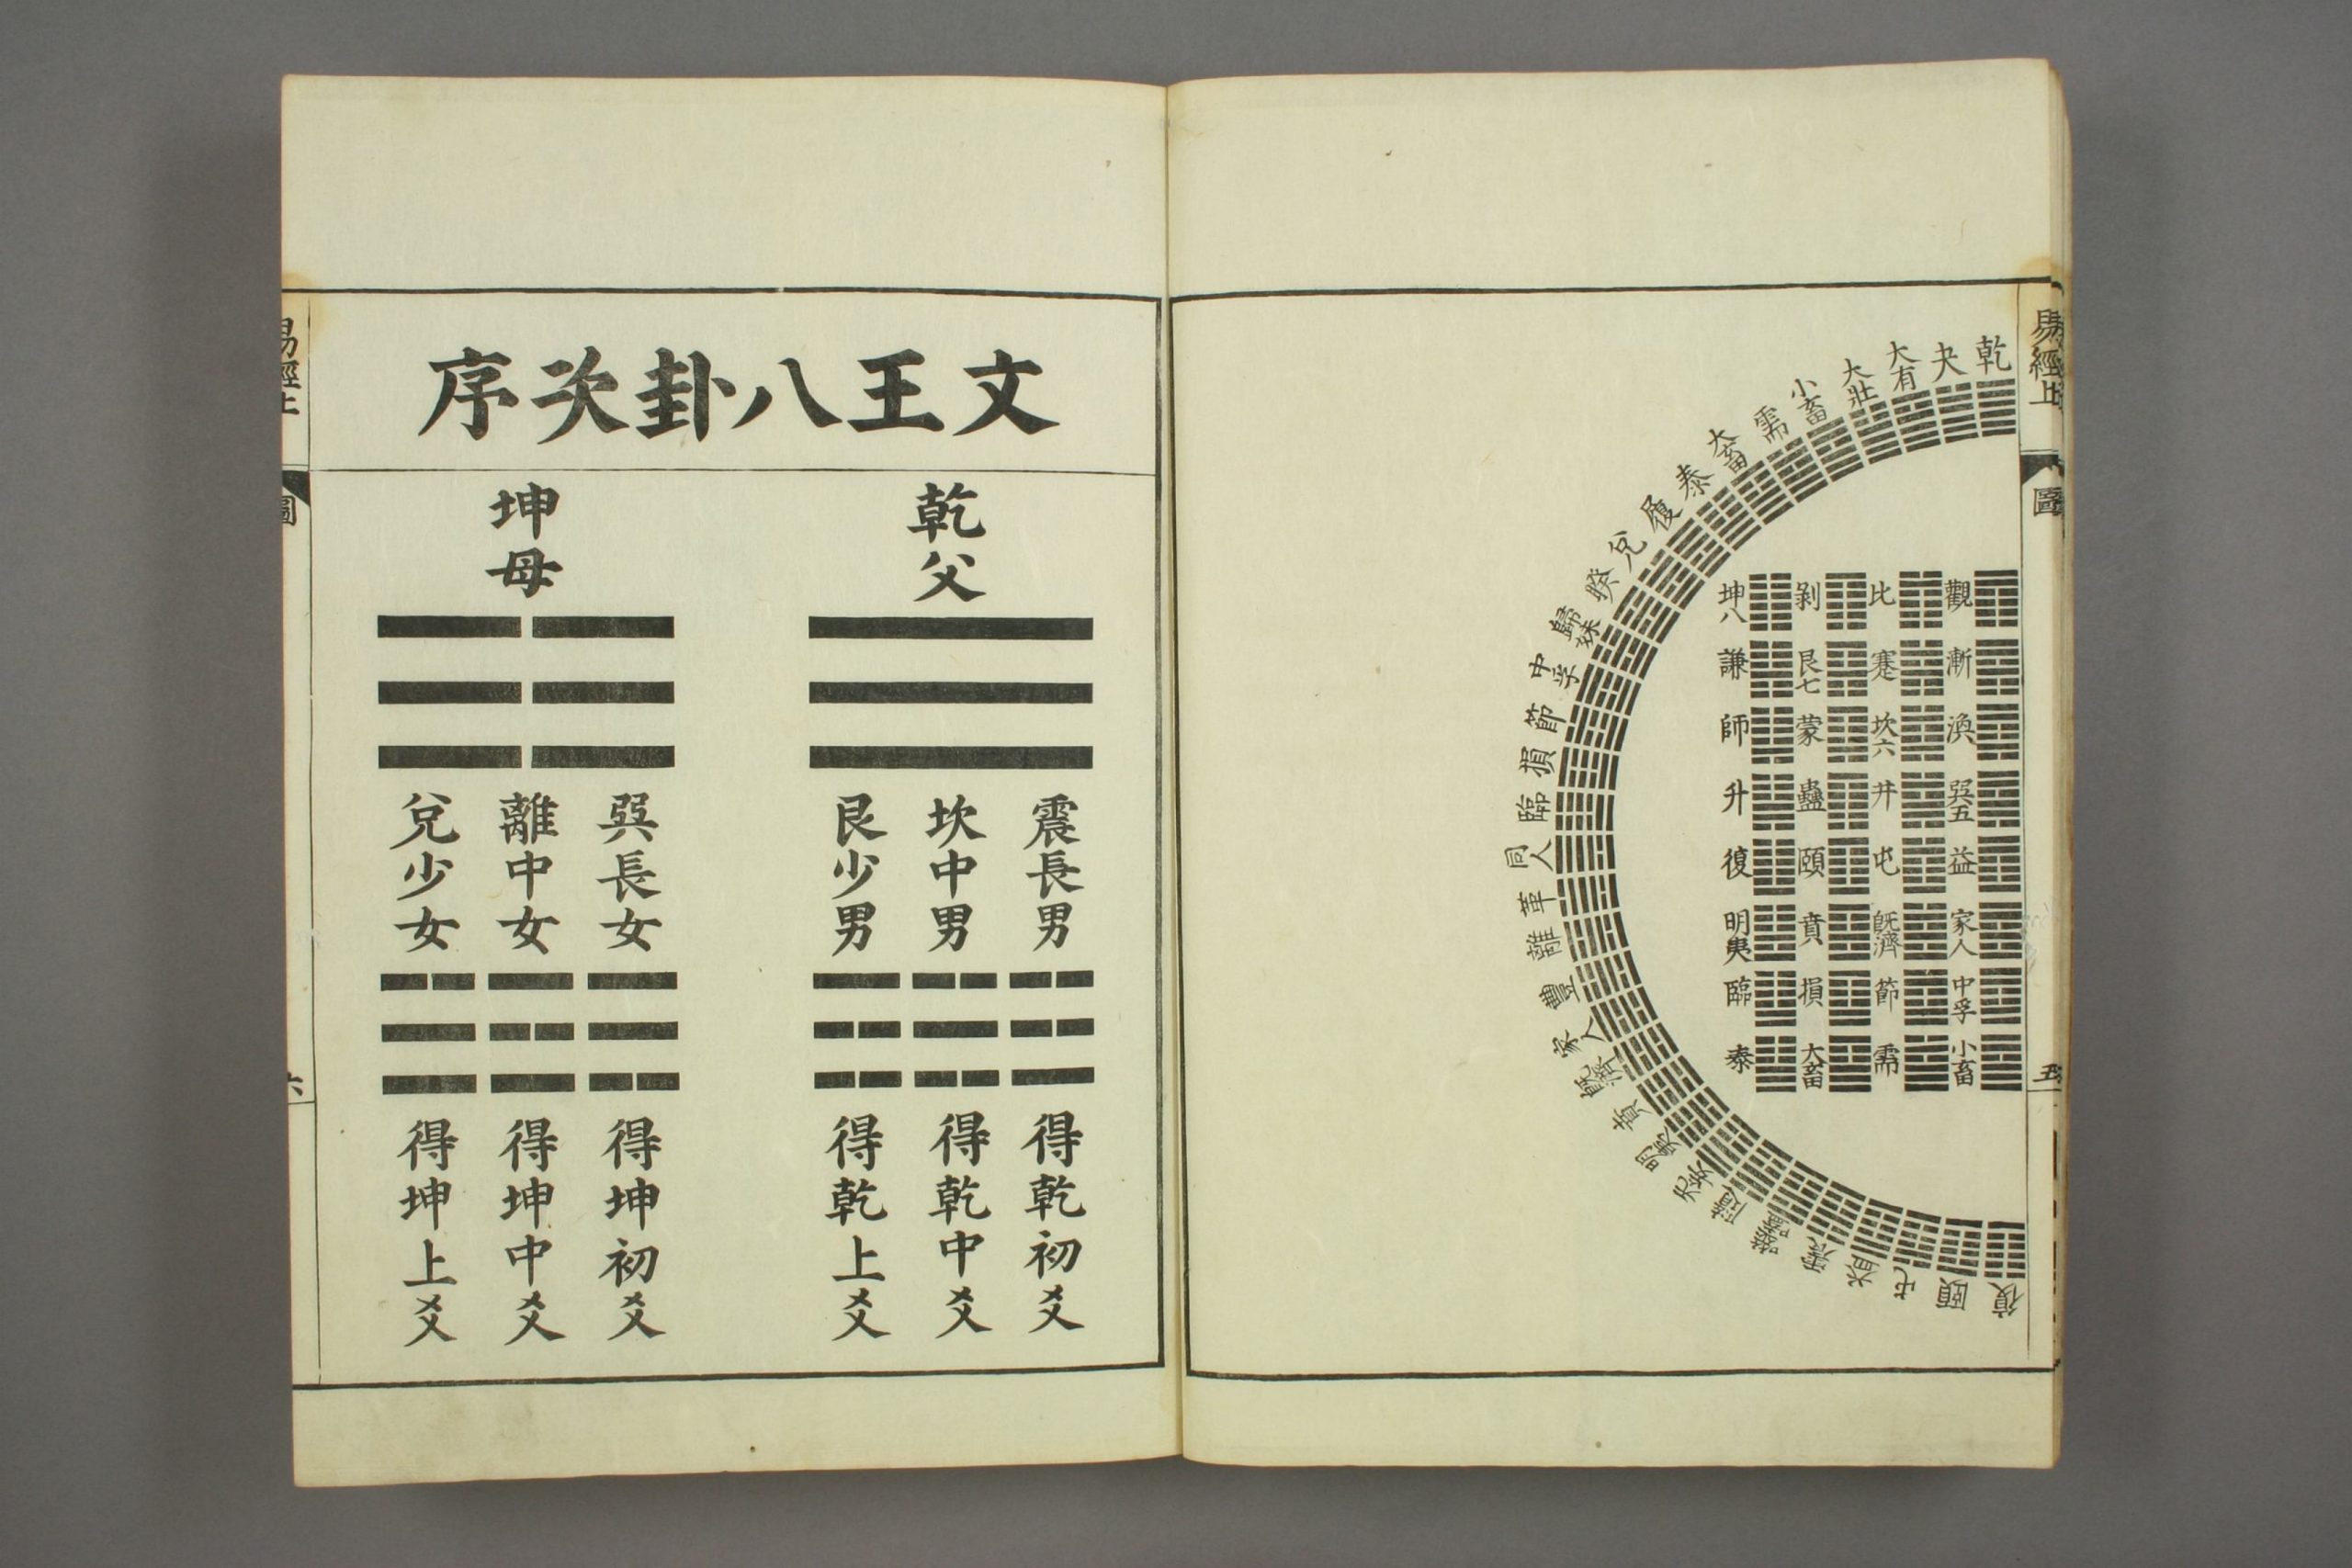 易經上
圖
五
乾
夬
大有
大壯
小畜
需
大畜
泰
履
兌
睽
歸妹
中孚
節
損
臨
同人
革
離
豐
家人
既濟
賁
明夷
无妄
隨
噬嗑
震
益
屯
頤
復
觀
比
剝
坤八
漸
蹇
艮七
謙
渙
坎六
蒙
師
巽五
井
蠱
升
益
屯
頤
復
家人
既濟
賁
明夷
中孚
節
損
臨
小畜
需
大畜
泰
文王八卦次序
乾父
震長男
坎中男
艮少男
得乾初爻
得乾中爻
得乾上爻
坤母
巽長女
離中女
兌少女
得坤初爻
得坤中爻
得坤上爻
易經上
圖
六